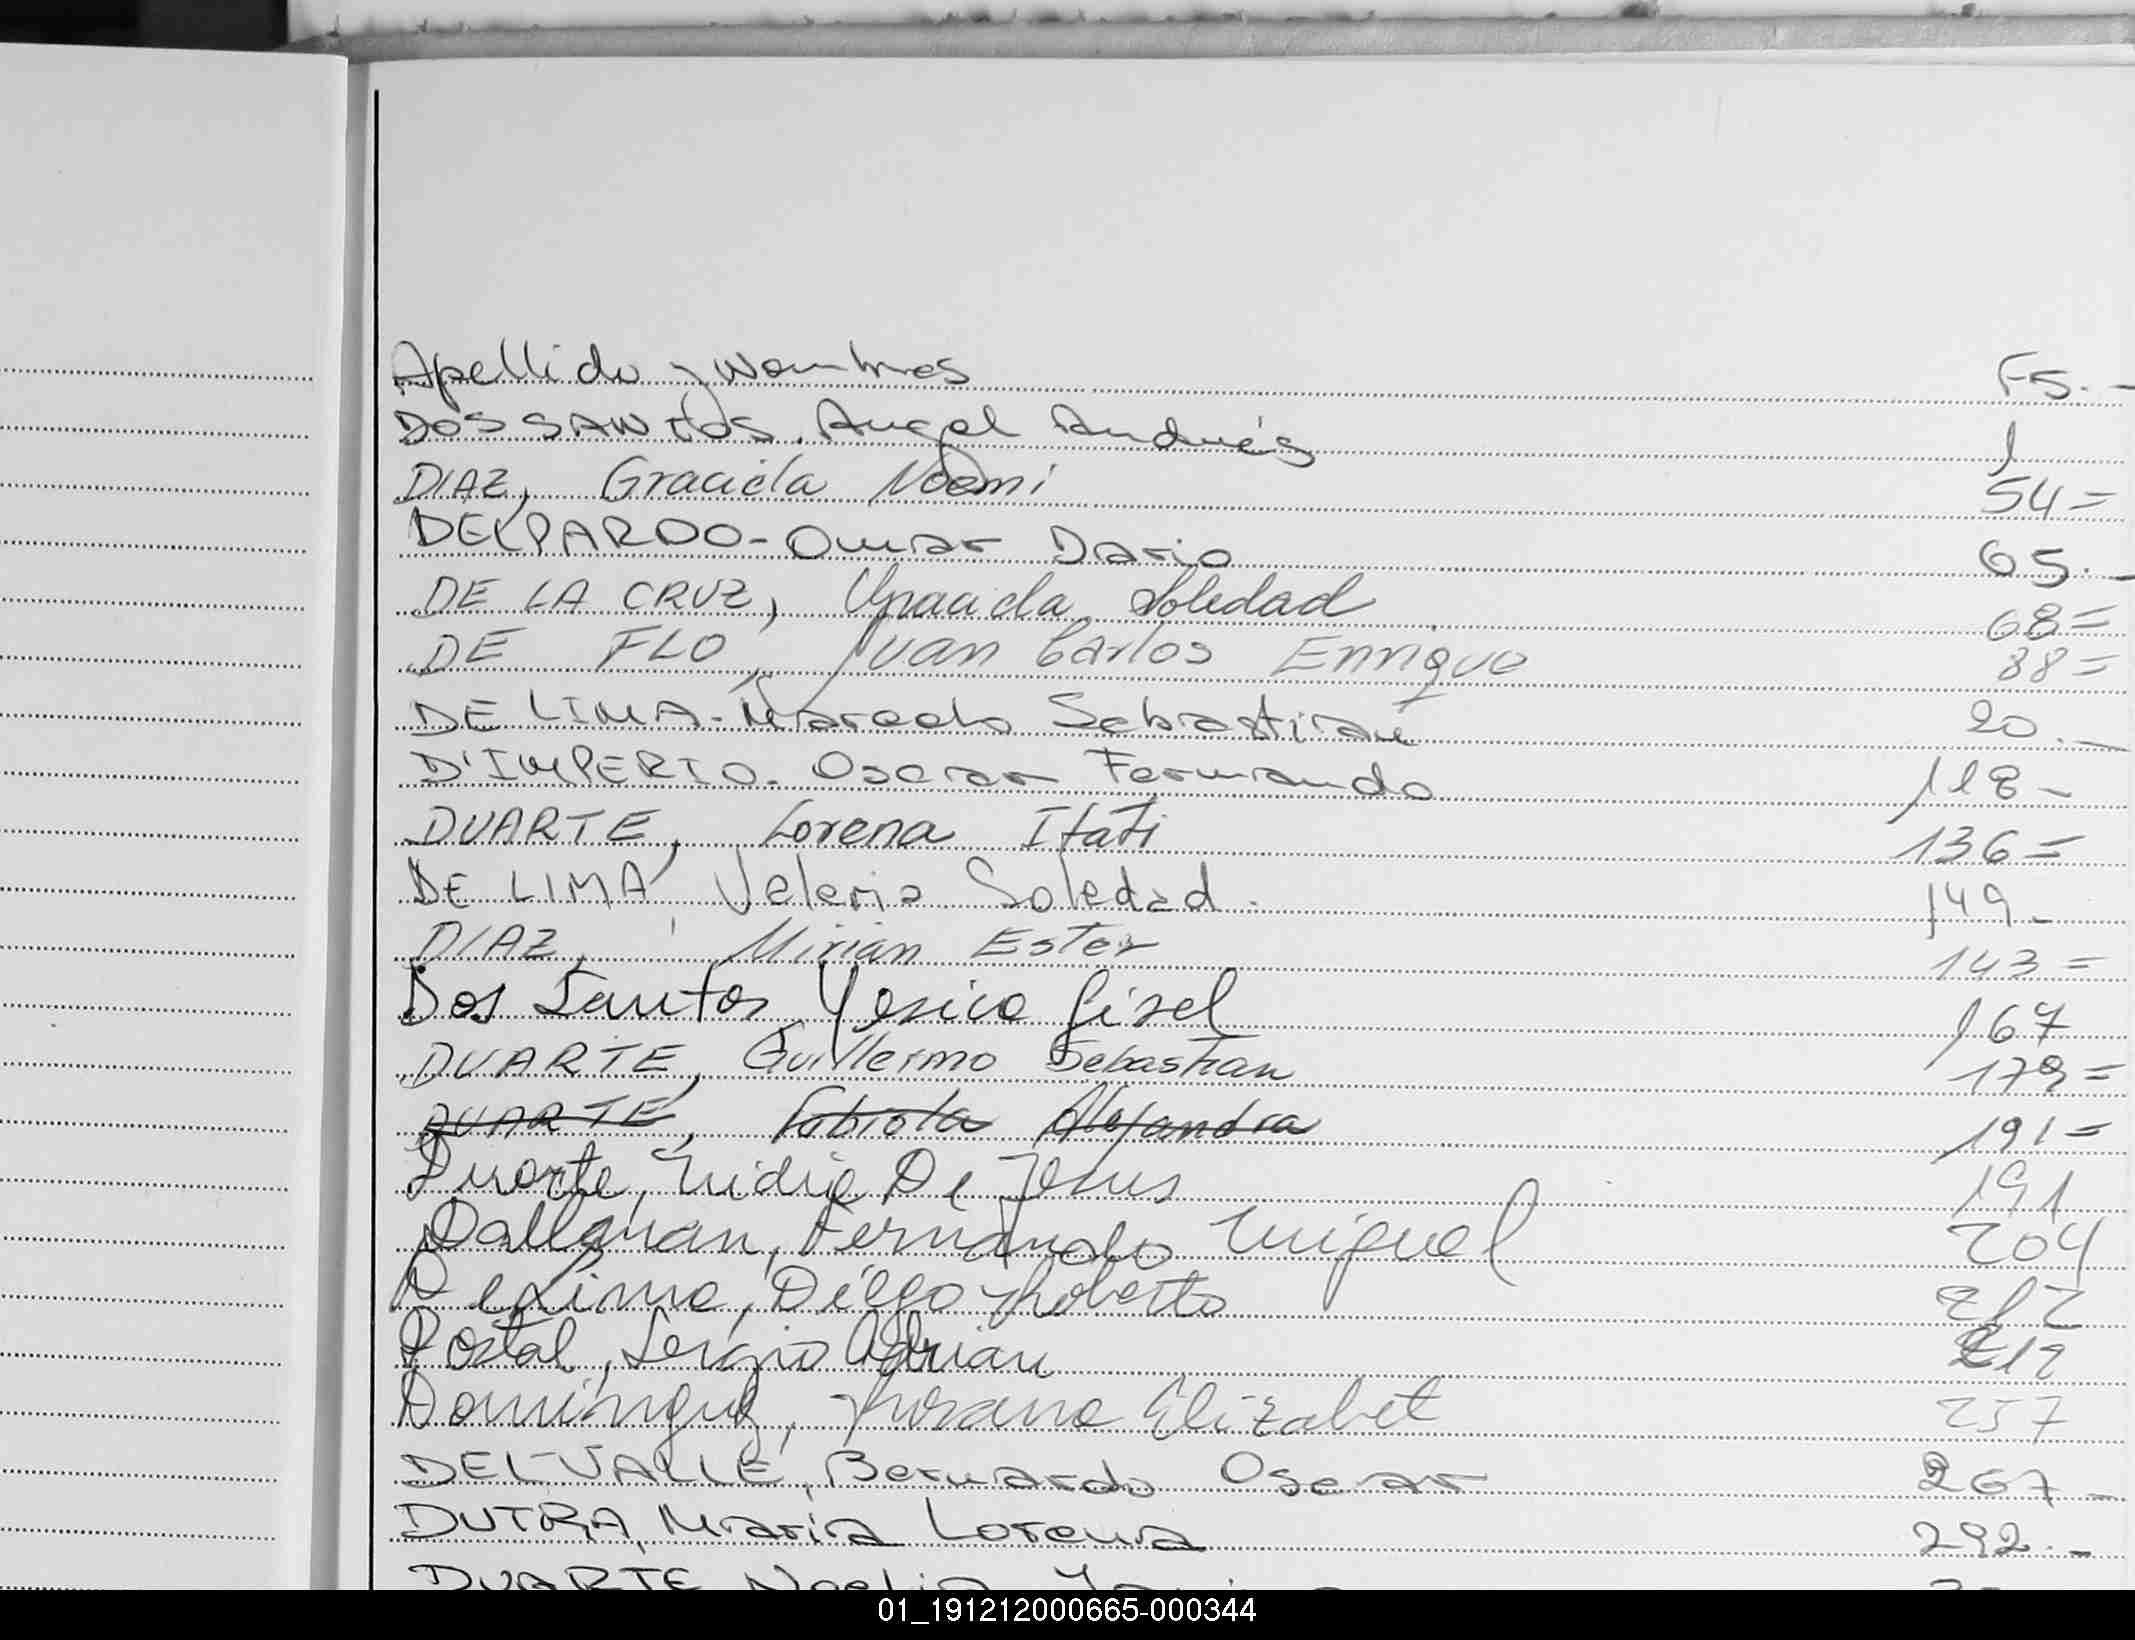 Apellido y Nombres Fs.-
DOS SANTOS. Angel Andrés 1
DIAZ, Graciela Noemi 54=
DELPARDO- Omar Dario 65.-
DE LA CRUZ, Graciela Soledad 68=
DE FLO, Juan Carlos Enrique 88=
DE LIMA- Marcelo Sebastian 90.-
D'IMPERIO- Oscar Fernando 118-
DUARTE, Lorena Itati 136=
DE LIMA, Valeria Soledad. 149-
DIAZ, Mirian Ester 143=
Dos Santos Yesica Gisel 167
DUARTE, Guillermo Sebastian 179=
DUARTE, Fabiola Alejandra 191=
Duarte, Lidia De Jesus 191
Dallaman, Fernando Miguel 204
De Lima, Diego Roberto 212
Dostal, Sergio Adrian 219
Dominguez, Rosana Elizabet 257
DEL VALLE, Bernardo Oscar 267-
DUTRA, Maria Lorena 292.-
DUARTE Noelia
01_191212000665-000344